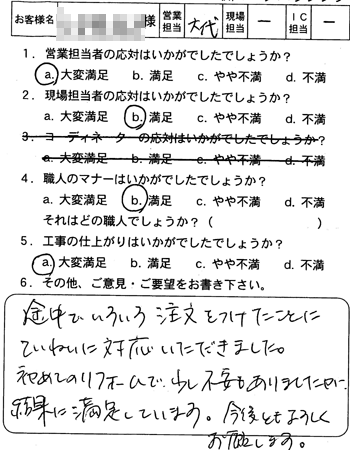 お客様名 様 営業担当 大代 現場担当 ー IC担当 ー
1. 営業担当者の応対はいかがでしたでしょうか?
a. 大変満足 b. 満足 c. やや不満 d. 不満
2. 現場担当者の応対はいかがでしたでしょうか?
a. 大変満足 b. 満足 c. やや不満 d. 不満
3. コーディネーターの応対はいかがでしたでしょうか?
a. 大変満足 b. 満足 c. やや不満 d. 不満
4. 職人のマナーはいかがでしたでしょうか?
a. 大変満足 b. 満足 c. やや不満 d. 不満
それはどの職人でしょうか?( )
5. 工事の仕上がりはいかがでしたでしょうか?
a. 大変満足 b. 満足 c. やや不満 d. 不満
6. その他、ご意見・ご要望をお書き下さい。
途中でいろいろ注文をつけたことに
ていねいに対応いただきました。
初めてのリフォームで、少し不安もありましたが、
結果に満足しています。今後ともよろしく
お願いします。